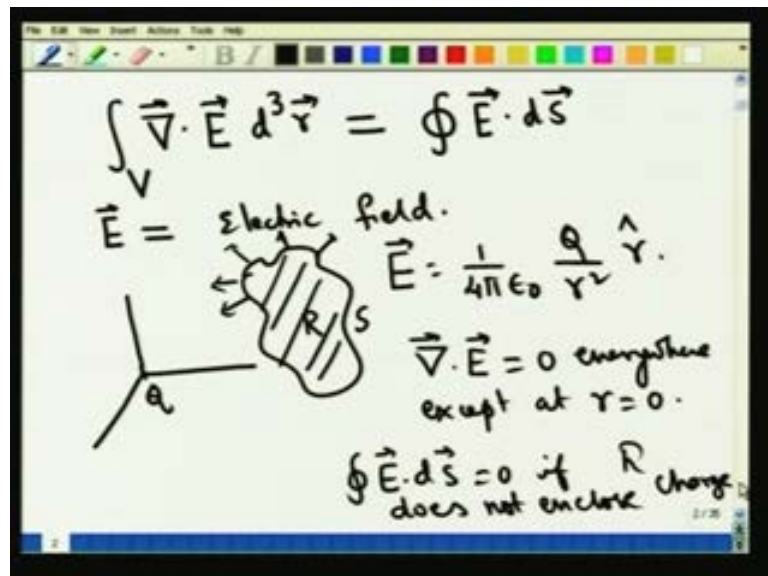 File Edit View Insert Actions Tools Help
B I
∫_V ∇⃗·E⃗ d³r⃗ = ∮ E⃗·dS⃗
E⃗ = Electric field.
E⃗ = 1/4πε₀ Q/r² r̂.
R S
Q
∇⃗·E⃗ = 0 everywhere
except at r=0.
∮ E⃗·dS⃗ = 0 if R
does not enclose charge
2